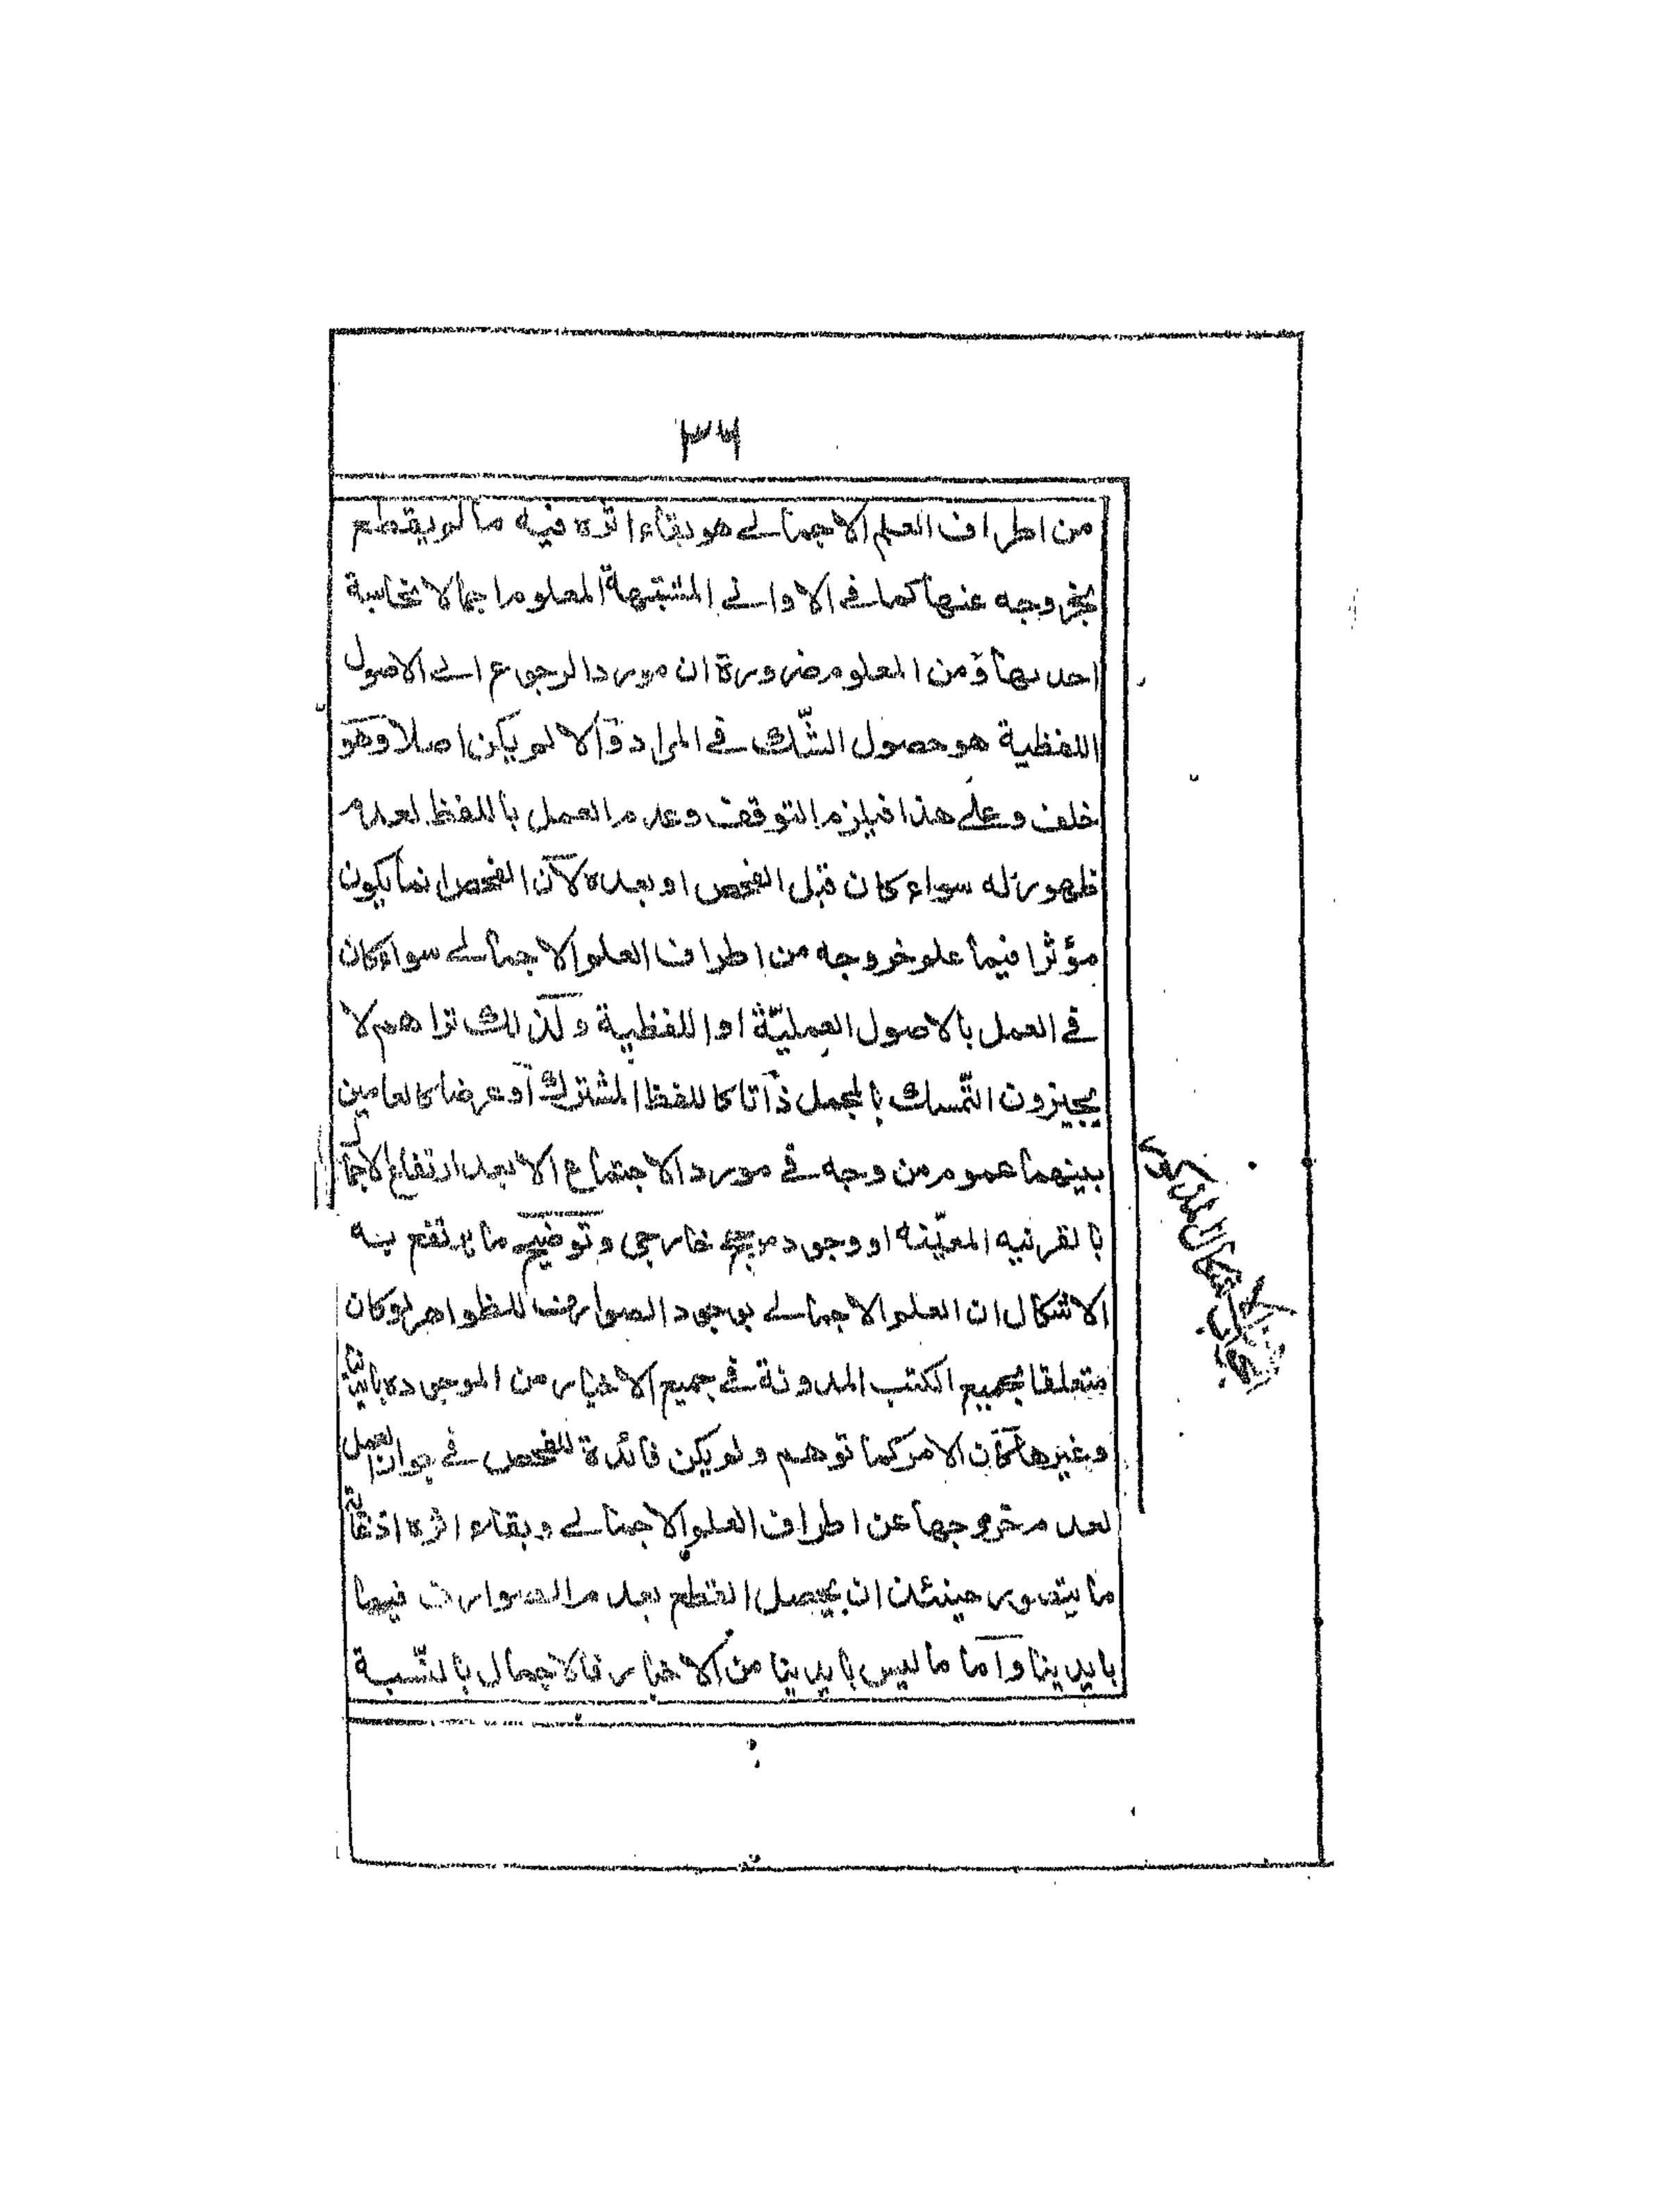 ٣٦
من اطراف العلم الاجمالے هو بقاء اثره فيه مالم يقطع
بخروجه عنها كما فے الاوانے المشتبهة المعلوم اجمالا نجاسة
احديها ومن المعلوم ضرورة ان مورد الرجوع الے الاصول
اللفظية هو حصول الشّك فے المراد والا لم يكن اصلا وهو
خلف وعلے هذا فيلزم التوقف وعدم العمل باللفظ لعدم
ظهور له سواء كان قبل الفحص او بعده لان الفحص انما يكون
مؤثرا فيما علم خروجه من اطراف العلم الاجمالے سواء كان
فے العمل بالاصول العمليّة او اللفظية ولذلك تراهم لا
يجيزون التّمسك بالمجمل ذاتا كاللفظ المشترك او عرضا كالعامين
بينهما عموم من وجه فے مورد الاجتماع الا بعد ارتفاع الاجمال
بالقرنيه المعيّنه او وجود مرجح خارجى وتوضيح ما يرتفع به
الاشكال ان العلم الاجمالے بوجود الصوارف للظواهر لو كان
متعلقا بجميع الكتب المدونة فے جميع الاخبار من الموجوده بايدينا
وغيرها لكان الامر كما توهم ولم يكن فائدة للفحص فے جواز العمل
لعدم خروجها عن اطراف العلم الاجمالے وبقاء اثره اذ غاية
ما يتصور حينئذ ان يحصل القطع بعدم الصوارف فيما
بايدينا واما ما ليس بايدينا من الاخبار فالاجمال بالنّسبة